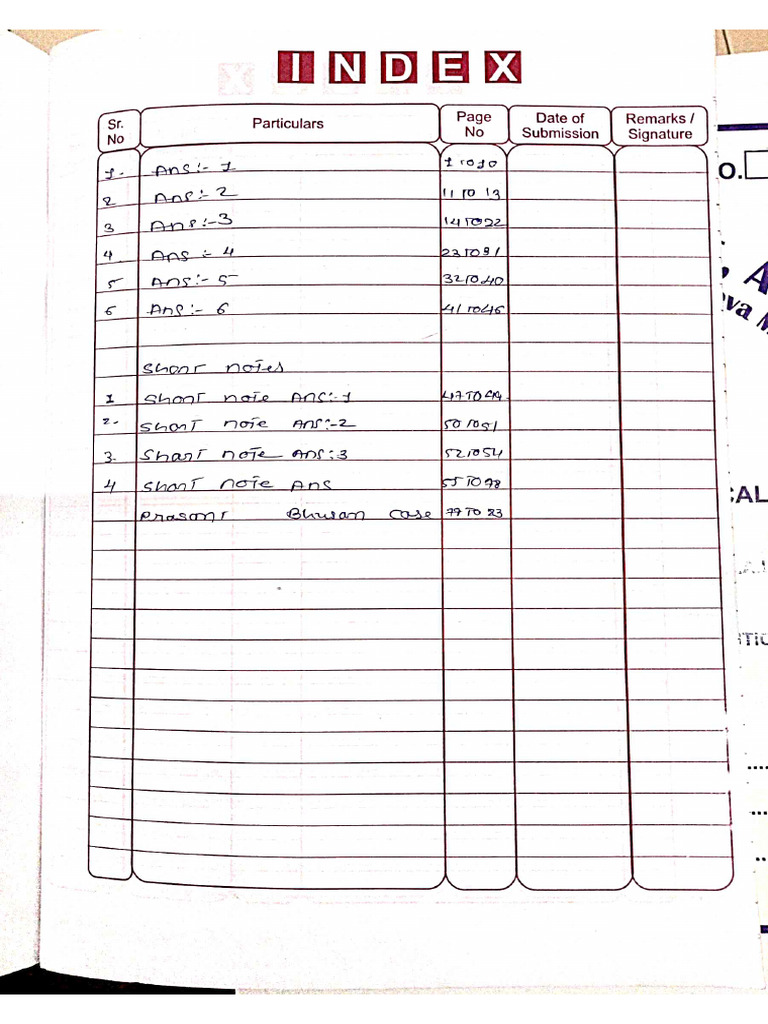 INDEX
Sr. No Particulars Page No Date of Submission Remarks / Signature
1. Ans:- 1 1 to 10
2 Ans:- 2 11 TO 13
3 Ans:-3 14 TO 22
4. Ans :- 4 23 TO 31
5 Ans:- 5 32 TO 40
6 Ans:- 6 41 TO 46
Short notes
1 Short note Ans:-1 47 TO 49
2. Short note Ans:-2 50 TO 51
3. Short note Ans:3 52 TO 54
4 Short note Ans 55 TO
Prasant Bhusan Case TO
O.